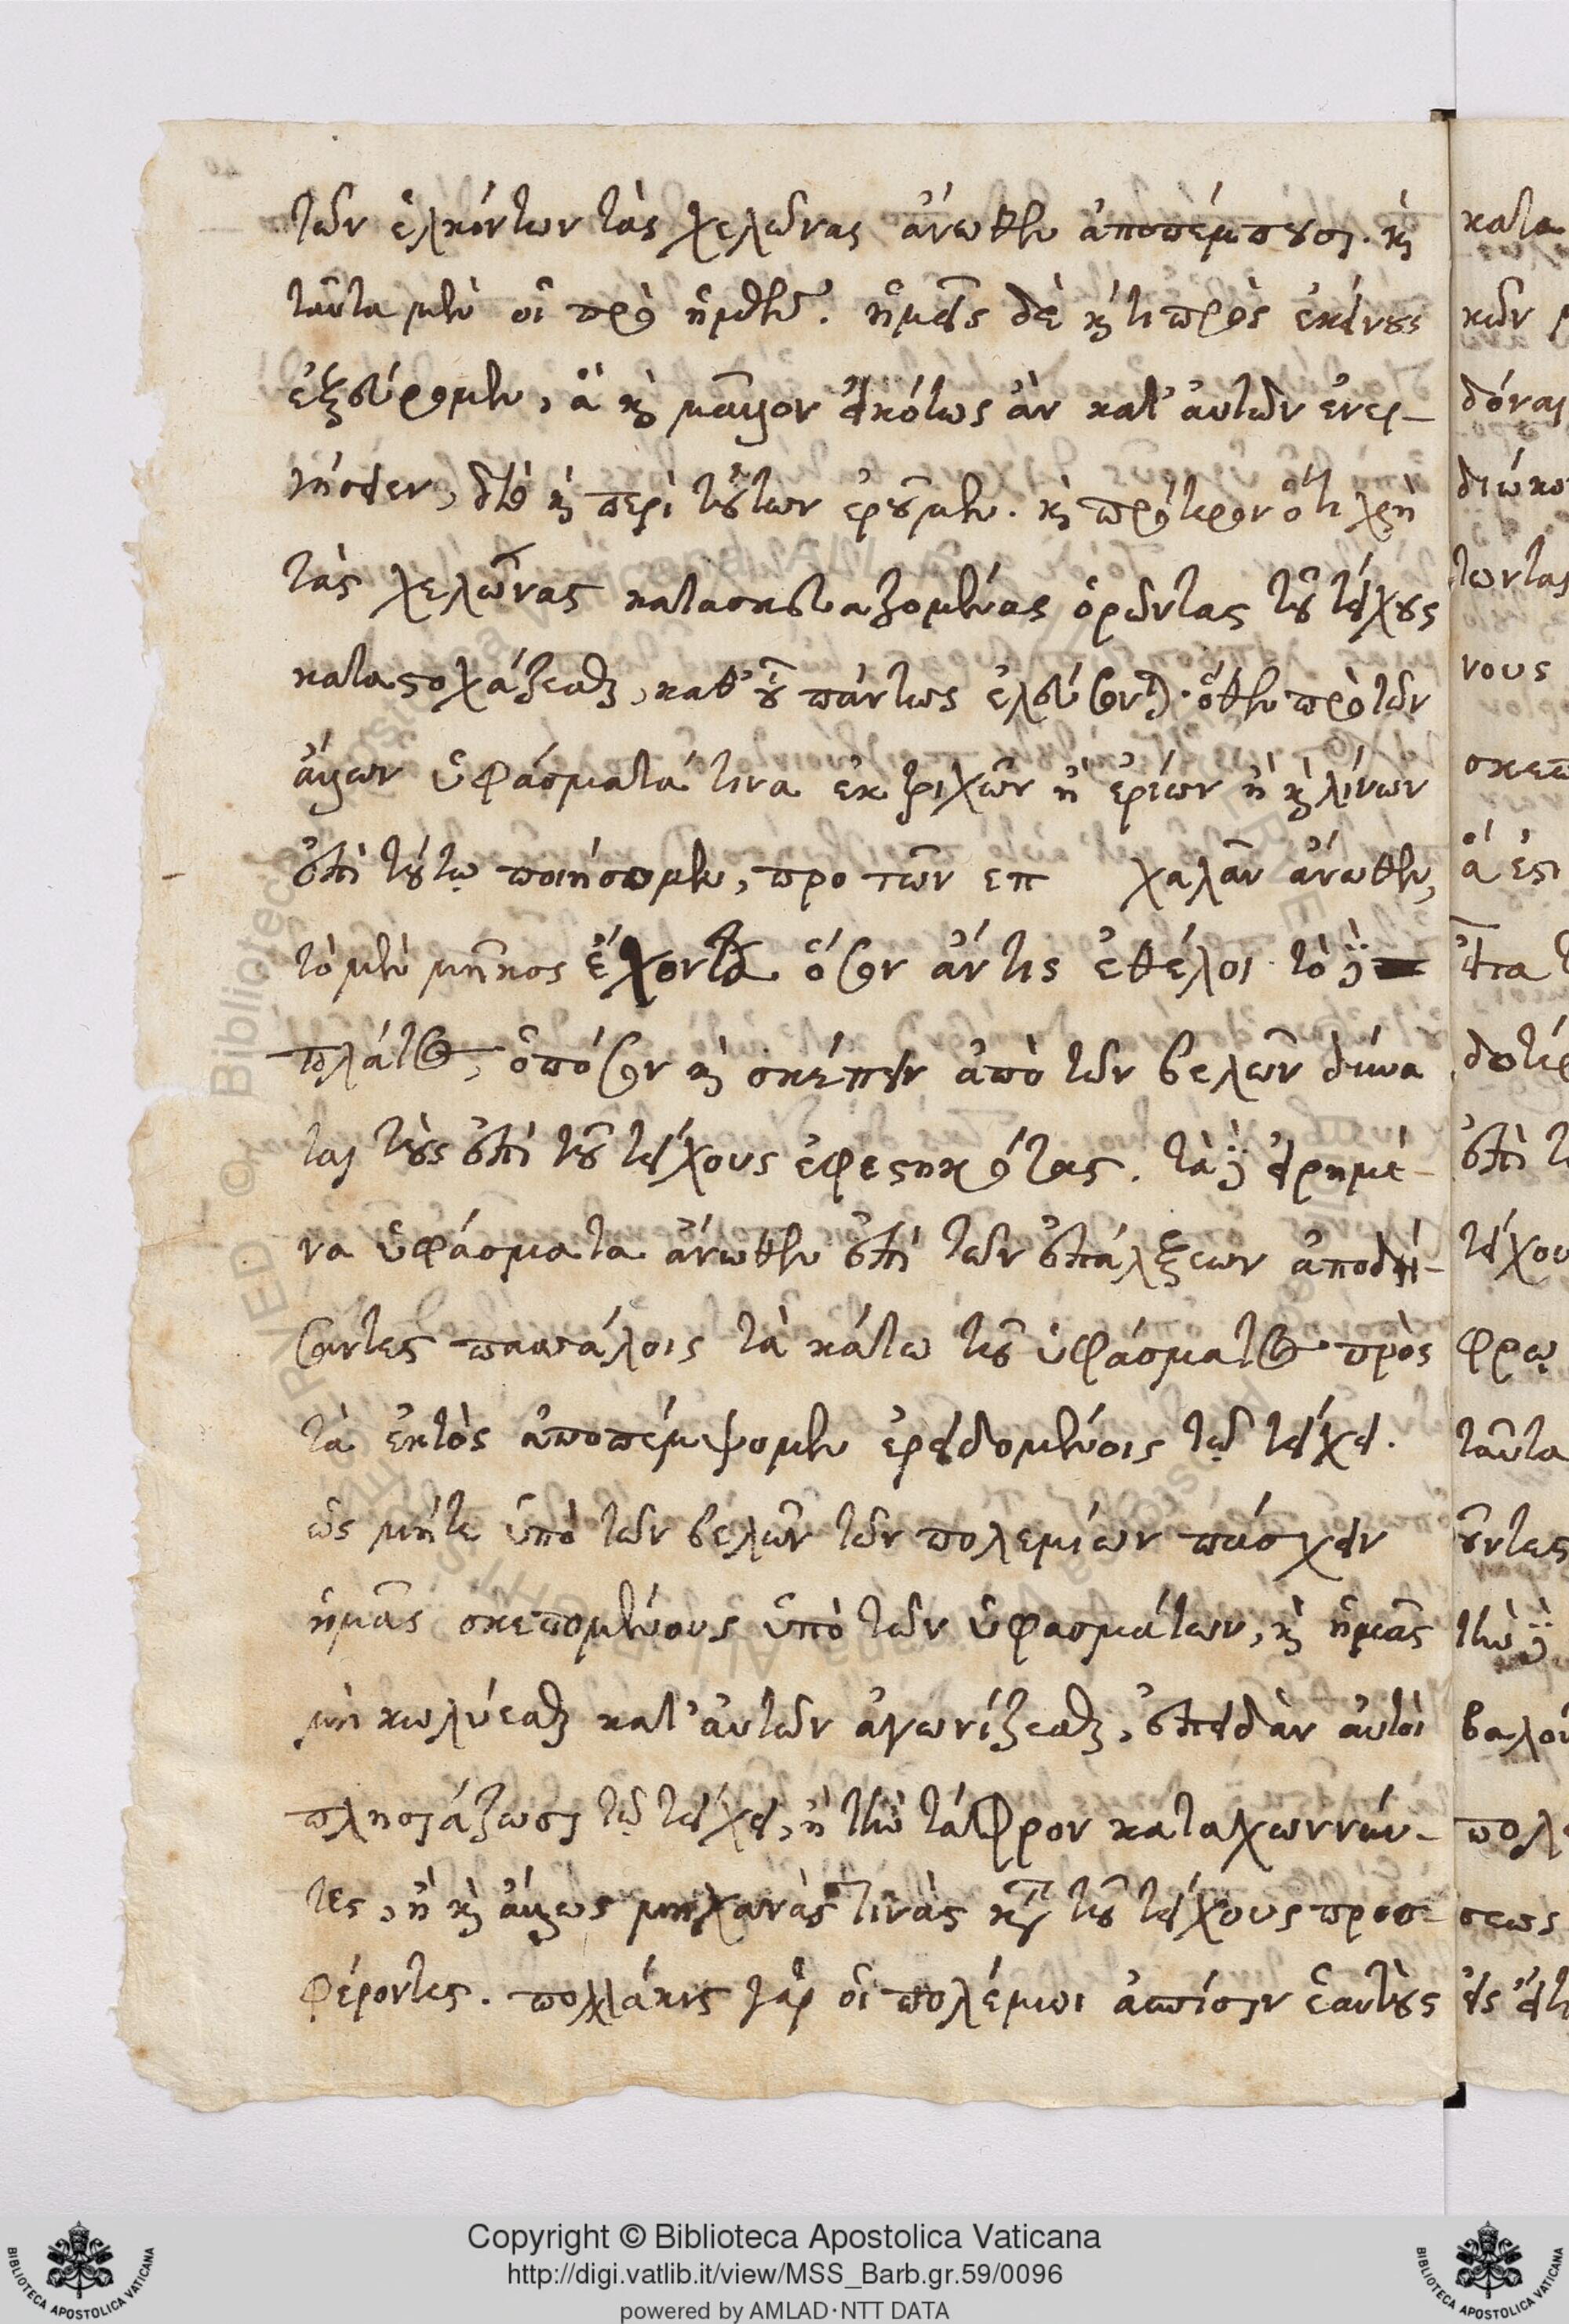 τῶν ἑλκόντων τὰς χελώνας ἄνωθεν ἀποπέμπουσι. καὶ
ταῦτα μὲν οἱ πρὸ ἡμῶν. ἡμεῖς δὲ καί τι πρὸς ἐκείνοις
ἐξεύρομεν, ἃ καὶ μᾶλλον εἰκότως ἂν κατ' αὐτῶν ἐνερ-
γήσειεν, διὸ καὶ περὶ τούτων ἐροῦμεν. καὶ πρότερον ὅτι χρὴ
τὰς χελώνας κατασκευαζομένας ὁρῶντας τοῦ τείχους
καταστοχάζεσθαι, καθ' οὗ πάντως ἐλεύσονται. ὅθεν πρὸ τῶν
ἄλλων ὑφάσματά τινα ἐκ τριχῶν ἢ ἐρίων ἢ καὶ λίνων
ἐπὶ τούτῳ ποιήσομεν, προ τῶν επ χαλᾶν ἄνωθεν,
τὸ μὲν μῆκος ἔχοντα ὅσον ἄν τις ἐθέλοι· τὸ δὲ
πλάτος, ὁπόσον καὶ σκέπειν ἀπὸ τῶν βελῶν δύνα
ται τοὺς ἐπὶ τοῦ τείχους ἐφεστηκότας. τὰ δὲ εἰρημέ-
να ὑφάσματα ἄνωθεν ἐπὶ τῶν ἐπάλξεων ἀποδή-
σαντες πασσάλοις τὰ κάτω τοῦ ὑφάσματος πρὸς
τὰ ἐκτὸς ἀποπέμψομεν ἐρειδομένοις τῷ τείχει.
ὡς μήτε ὑπὸ τῶν βελῶν τῶν πολεμίων πάσχειν
ἡμᾶς σκεπομένους ὑπὸ τῶν ὑφασμάτων, καὶ ἡμᾶς
μὴ κωλύεσθαι κατ' αὐτῶν ἀγωνίζεσθαι, ἐπειδὰν αὐτοὶ
πλησιάζωσι τῷ τείχει, ἢ τὴν τάφρον καταχωννύν-
τες, ἢ καὶ ἄλλως μηχανάς τινὰς κατὰ τοῦ τείχους προσ-
φέροντες. πολλάκις γὰρ οἱ πολέμιοι ἀσπίσιν ἑαυτοὺς
κατα
κῶν
δόναι
διώκο
τωντας
νους
σκεπ
ἅ ἐστι
εἶτα
δοτέ
ἐπὶ τ
τείχου
φρῳ
ταῦτα
οῦντες
τὴν δὲ
βαλού
πολε
σεως
εἰς
Copyright © Biblioteca Apostolica Vaticana
http://digi.vatlib.it/view/MSS_Barb.gr.59/0096
powered by AMLAD·NTT DATA
BIBLIOTECA APOSTOLICA VATICANA
BIBLIOTECA APOSTOLICA VATICANA